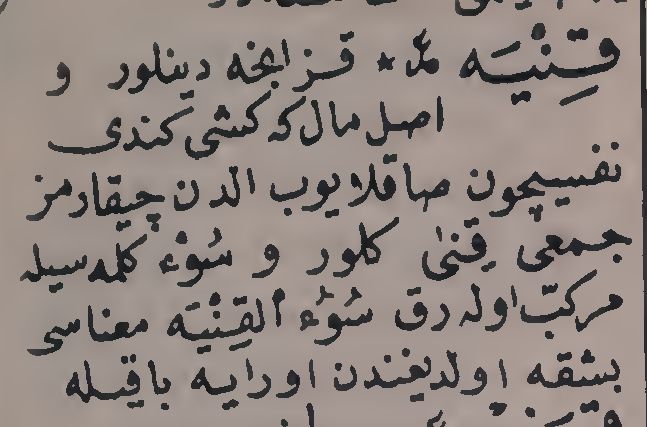 قِنْيَه عر * قزانجه دينلور و
اصل مال كه كشى كندى
نفسيچون صاقلايوب الدن چيقارمز
جمعى قِنىٰ كلور و سُوْء كلمه سيله
مركبّ اوله رق سُوْءُ الْقِنْيَه معناسى
بشقه اولديغندن اورايه باقيله